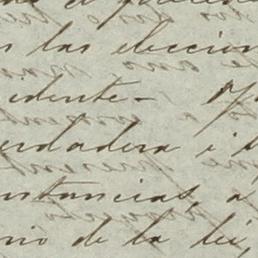 las eleccion
edente—
erdadera i
nstancias, a
rio de la lei,